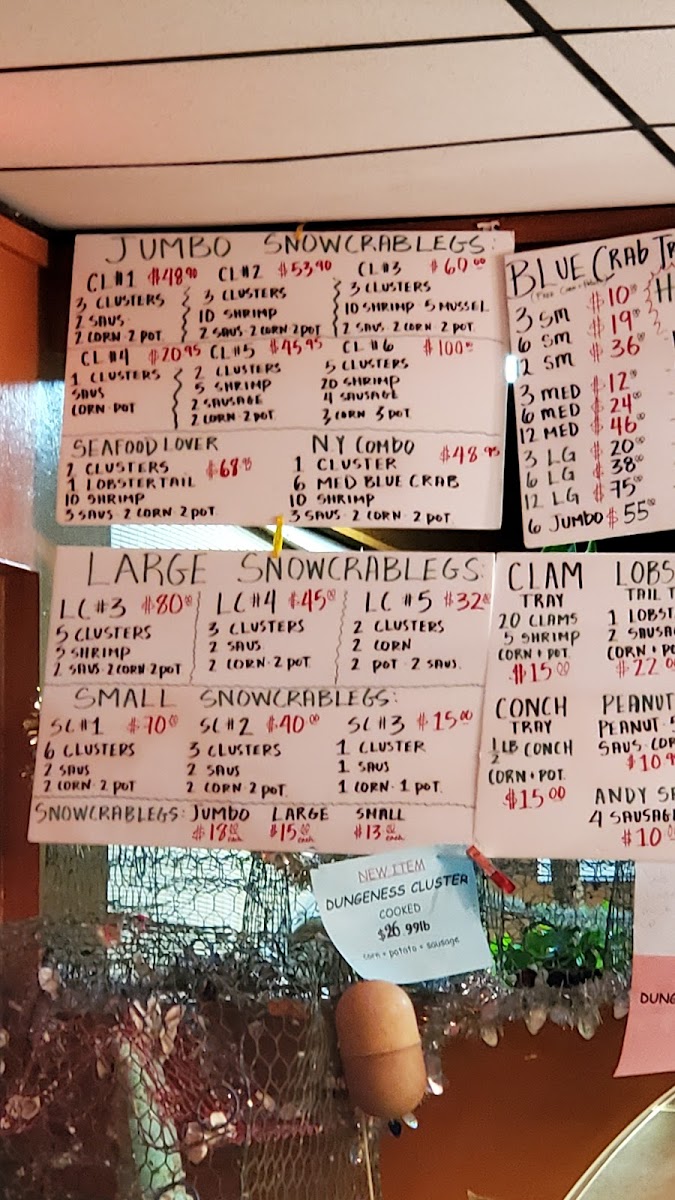 JUMBO SNOWCRABLEGS:
CL#1 $48.90
3 CLUSTERS
2 SAUS
2 CORN 2 POT
CL#2 $53.90
3 CLUSTERS
10 SHRIMP
2 SAUS 2 CORN 2 POT
CL#3 $60.00
3 CLUSTERS
10 SHRIMP 5 MUSSEL
2 SAUS 2 CORN 2 POT.
CL#4 $20.95
1 CLUSTERS
SAUS
CORN POT
CL#5 $45.95
2 CLUSTERS
5 SHRIMP
2 SAUSAGE
2 CORN 2 POT
CL#6 $100.00
5 CLUSTERS
20 SHRIMP
4 SAUSAGE
3 CORN 3 POT
SEAFOOD LOVER
2 CLUSTERS
1 LOBSTERTAIL
10 SHRIMP
3 SAUS 2 CORN 2 POT
NY COMBO $48.95
1 CLUSTER
6 MED BLUE CRAB
10 SHRIMP
3 SAUS 2 CORN 2 POT.
BLUE CRAB
3 SM $10.00
6 SM $19.00
12 SM $36.00
3 MED $12.00
6 MED $24.00
12 MED $46.00
3 LG $20.00
6 LG $38.00
12 LG $75.00
6 JUMBO $55.00
LARGE SNOWCRABLEGS:
LC#3 $80.00
5 CLUSTERS
5 SHRIMP
2 SAUS 2 CORN 2 POT
LC#4 $45.00
3 CLUSTERS
2 SAUS
2 CORN 2 POT
LC#5 $32.00
2 CLUSTERS
2 CORN
2 POT 2 SAUS.
SMALL SNOWCRABLEGS:
SC#1 $70.00
6 CLUSTERS
2 SAUS
2 CORN 2 POT
SC#2 $40.00
3 CLUSTERS
2 SAUS
2 CORN 2 POT
SC#3 $15.00
1 CLUSTER
1 SAUS
1 CORN 1 POT.
SNOWCRABLEGS: JUMBO LARGE SMALL
$18.00 each $15.00 each $13.00 each
CLAM
TRAY
20 CLAMS
5 SHRIMP
CORN + POT.
$15.00
LOBS
TAIL T
1 LOBST
2 SAUSA
CORN + PO
$22.0
CONCH
TRAY
1/2 LB CONCH
CORN + POT.
$15.00
PEANUT
PEANUT
SAUS COR
$10.9
ANDY SA
4 SAUSAGE
$10.0
NEW ITEM
DUNGENESS CLUSTER
COOKED
$26.99lb
corn + potato + sausage
DUNG